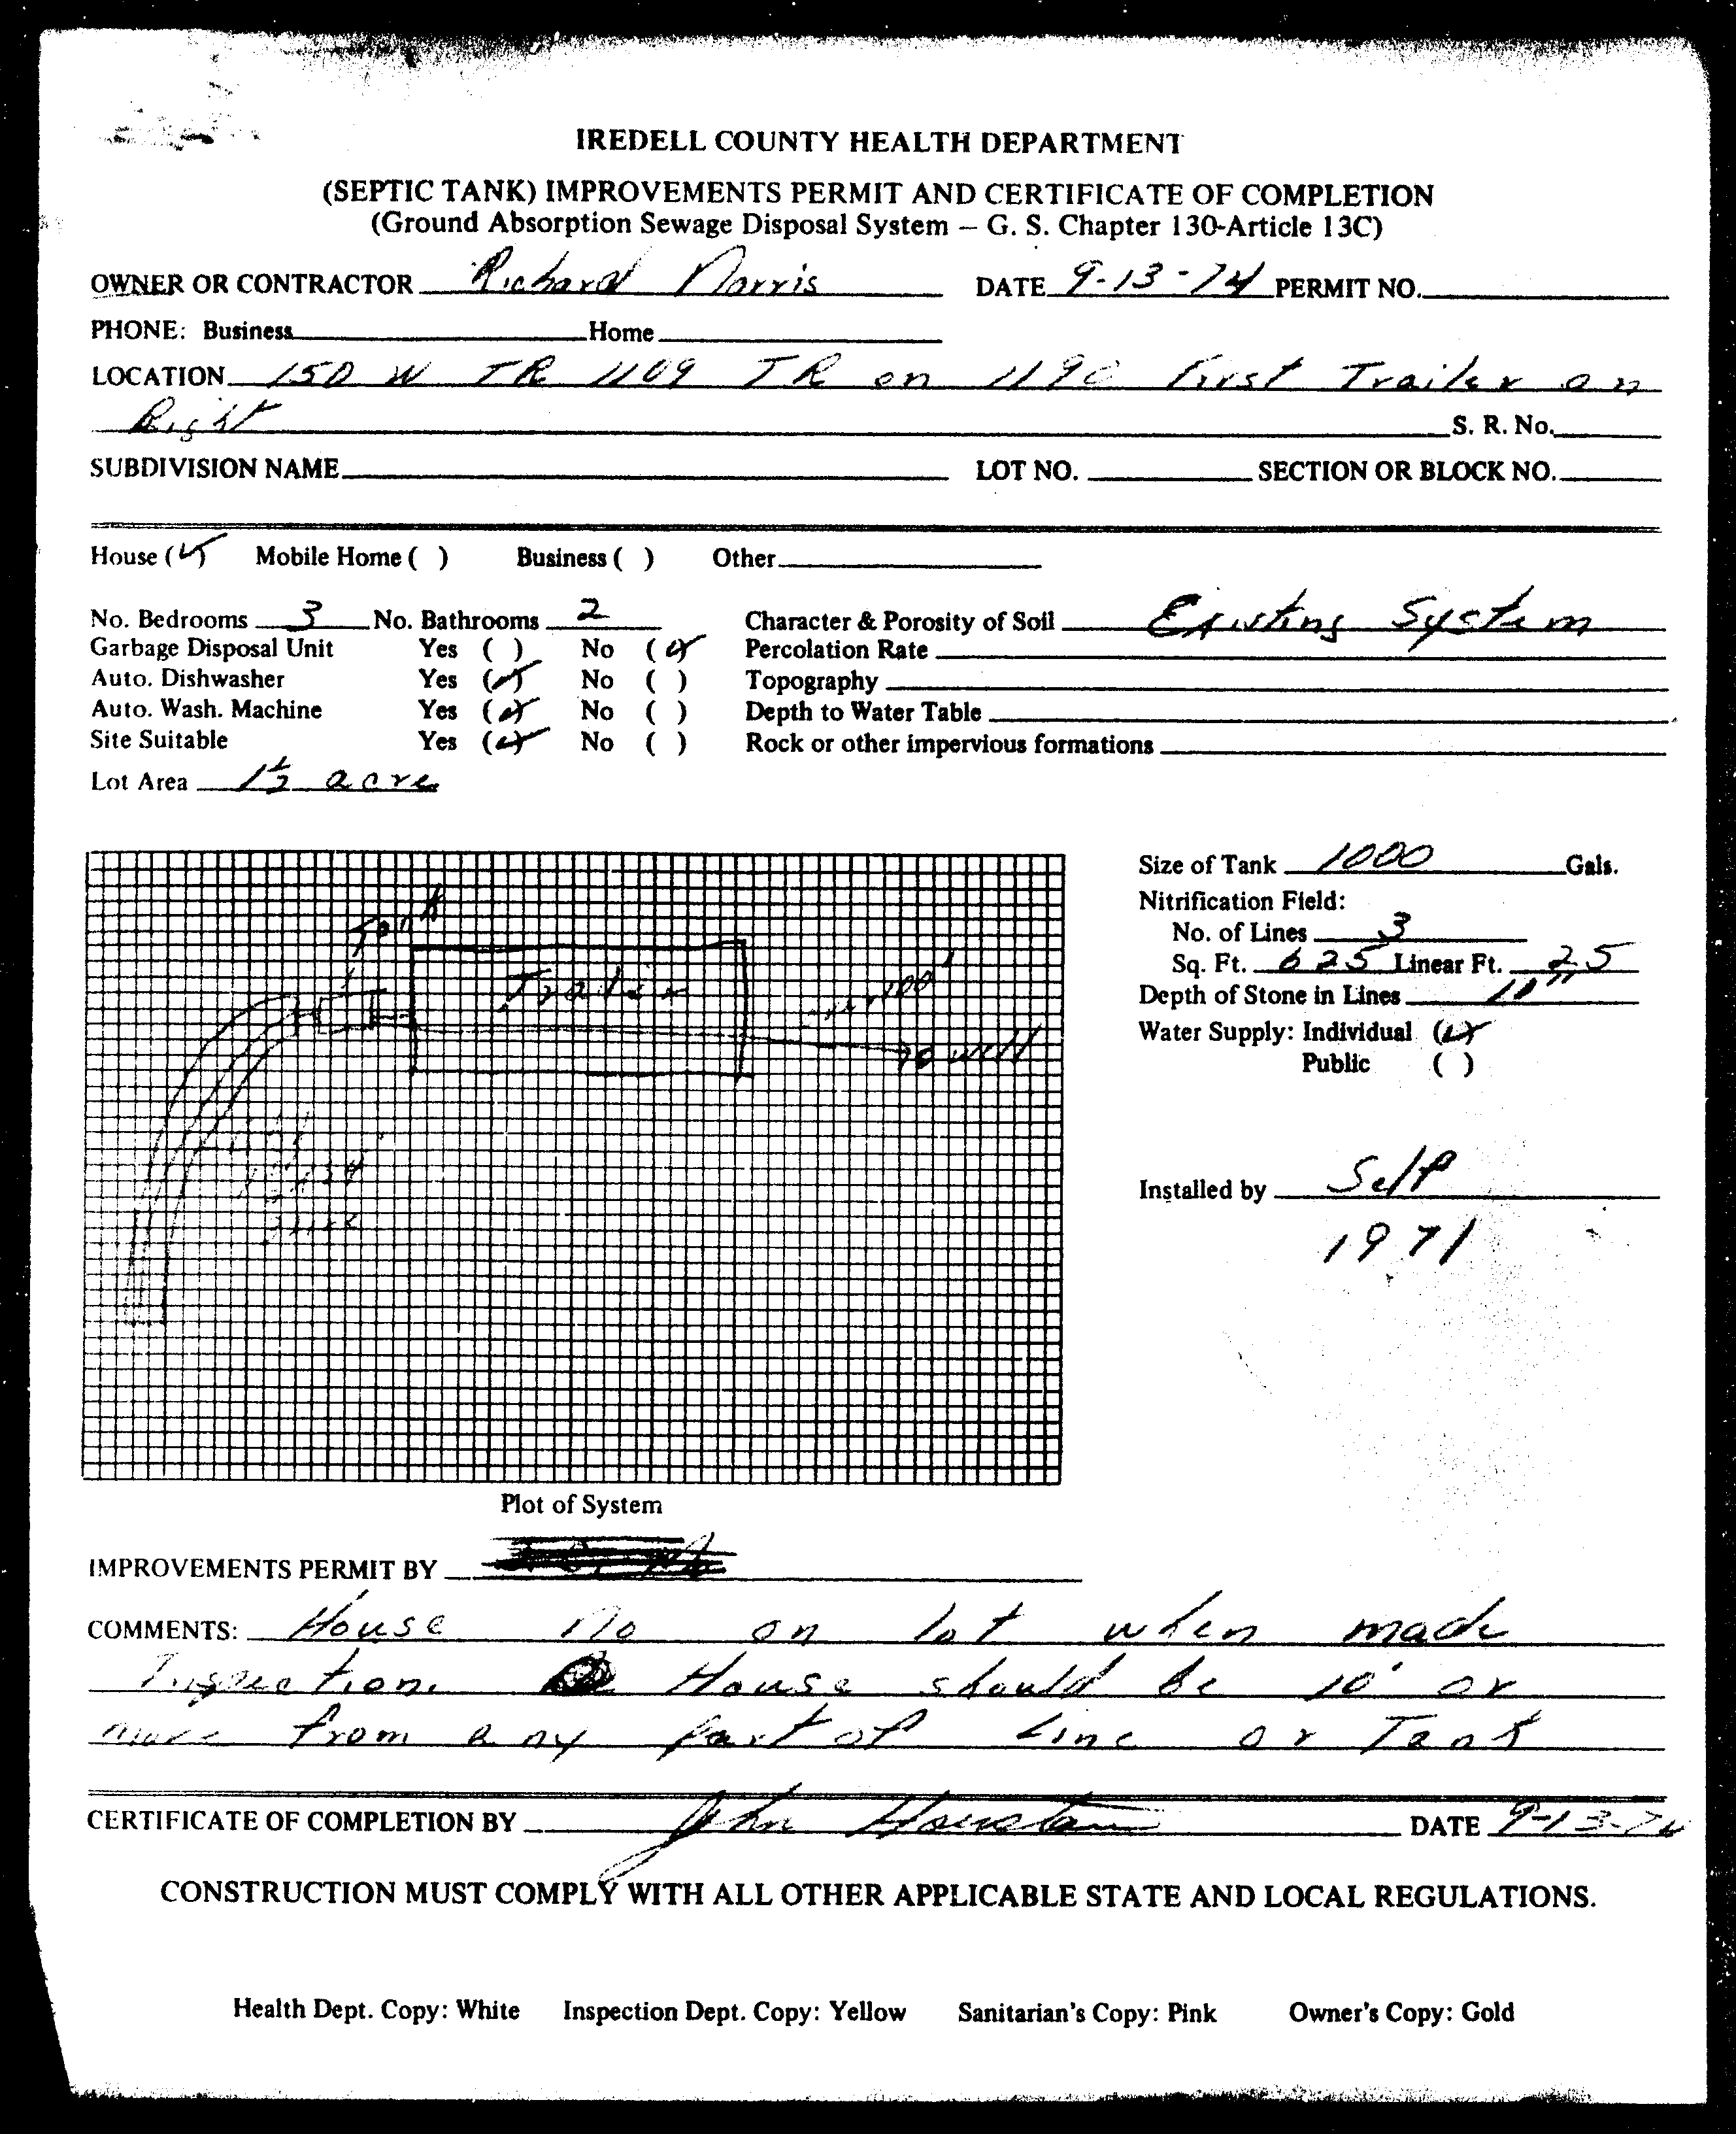 IREDELL COUNTY HEALTH DEPARTMENT
(SEPTIC TANK) IMPROVEMENTS PERMIT AND CERTIFICATE OF COMPLETION
(Ground Absorption Sewage Disposal System – G. S. Chapter 130-Article 13C)
OWNER OR CONTRACTOR Richard Norris DATE 9-13-74 PERMIT NO.
PHONE: Business Home
LOCATION 150 W TR 1109 TR on 1190 First Trailer on
Right S. R. No.
SUBDIVISION NAME LOT NO. SECTION OR BLOCK NO.
House (✓) Mobile Home ( ) Business ( ) Other
No. Bedrooms 3 No. Bathrooms 2 Character & Porosity of Soil Existing System
Garbage Disposal Unit Yes ( ) No (✓) Percolation Rate
Auto. Dishwasher Yes (✓) No ( ) Topography
Auto. Wash. Machine Yes (✓) No ( ) Depth to Water Table
Site Suitable Yes (✓) No ( ) Rock or other impervious formations
Lot Area 1½ acre
Size of Tank 1000 Gals.
Nitrification Field:
No. of Lines 3
Sq. Ft. 625 Linear Ft. 25
Depth of Stone in Lines 10"
Water Supply: Individual (✓)
Public ( )
Tank
Trailer
100'
to well
Installed by Self
1971
Plot of System
IMPROVEMENTS PERMIT BY
COMMENTS: House no on lot when made
Inspection. House should be 10' or
more from any part of Line or Tank
CERTIFICATE OF COMPLETION BY John Houston DATE 9-13-74
CONSTRUCTION MUST COMPLY WITH ALL OTHER APPLICABLE STATE AND LOCAL REGULATIONS.
Health Dept. Copy: White Inspection Dept. Copy: Yellow Sanitarian's Copy: Pink Owner's Copy: Gold